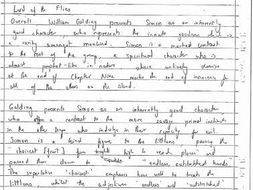 Lord of the Flies
Overall William Golding presents Simon as an inherently
good character who represents the innate goodness
a rarity amongst mankind. Simon is a marked contrast
to the rest of the group a spiritual character who is
almost prophet-like in nature whose untimely demise
at the end of Chapter Nine marks the end of innocence
of all of the boys on the island.
Golding presents Simon as an inherently good character
who offers a contrast to the more savage primal instincts
in the other boys who indulge in their capacity for evil.
Simon is a kind figure to the littluns passing the
choicest [fruit] from high to need places and
passed them down to endless outstretched hands
The superlative 'choicest' emphasis how well he treats the
littluns whilst the adjectives endless and outstretched